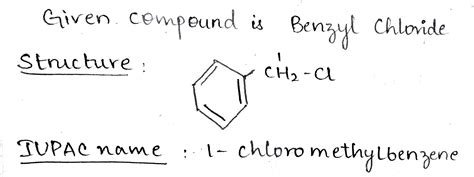 Given compound is Benzyl Chloride
Structure :
1
CH2-Cl
IUPAC name : 1- chloro methylbenzene